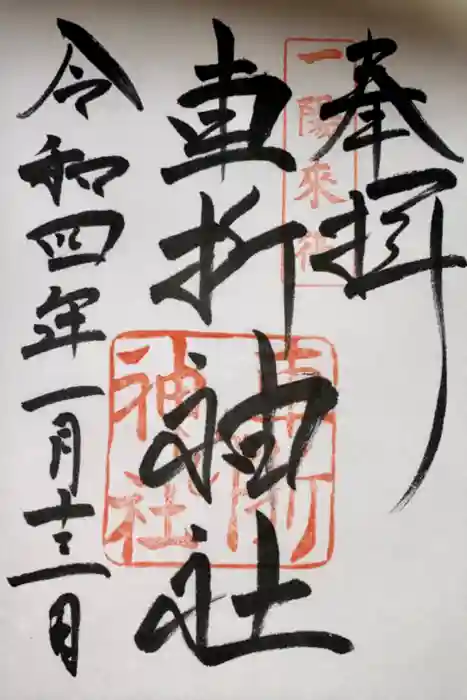 奉拝
一陽來復
車折神社
車折
神社
令和四年一月十三日